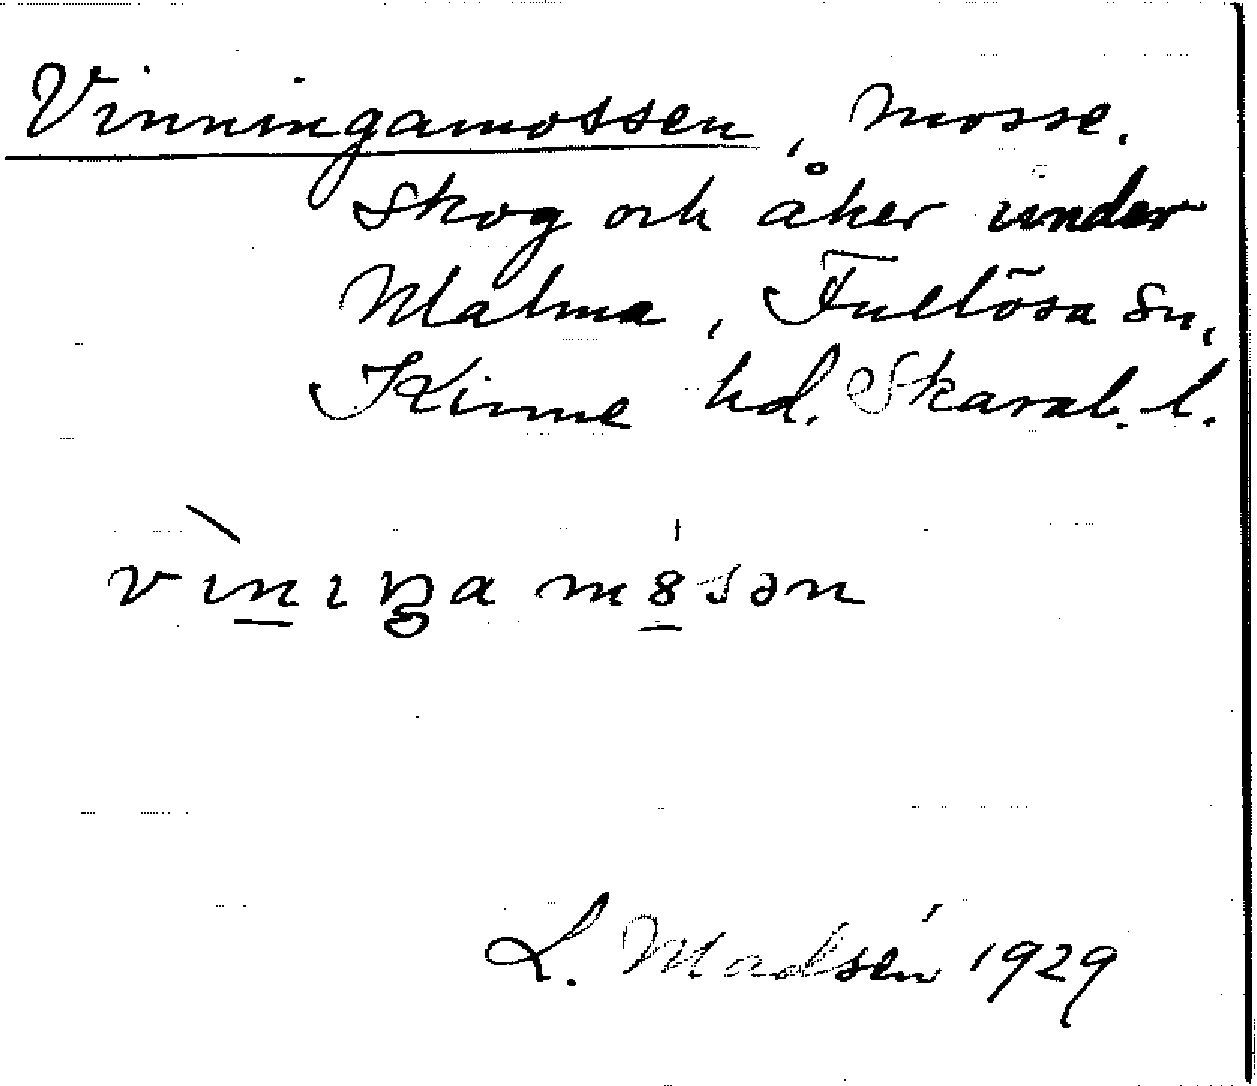 Vinningamossen, mosse.
Skog och åker under
Malma, Fullösa sn,
Kinne hd. Skarab. l.
L. Madsén 1929